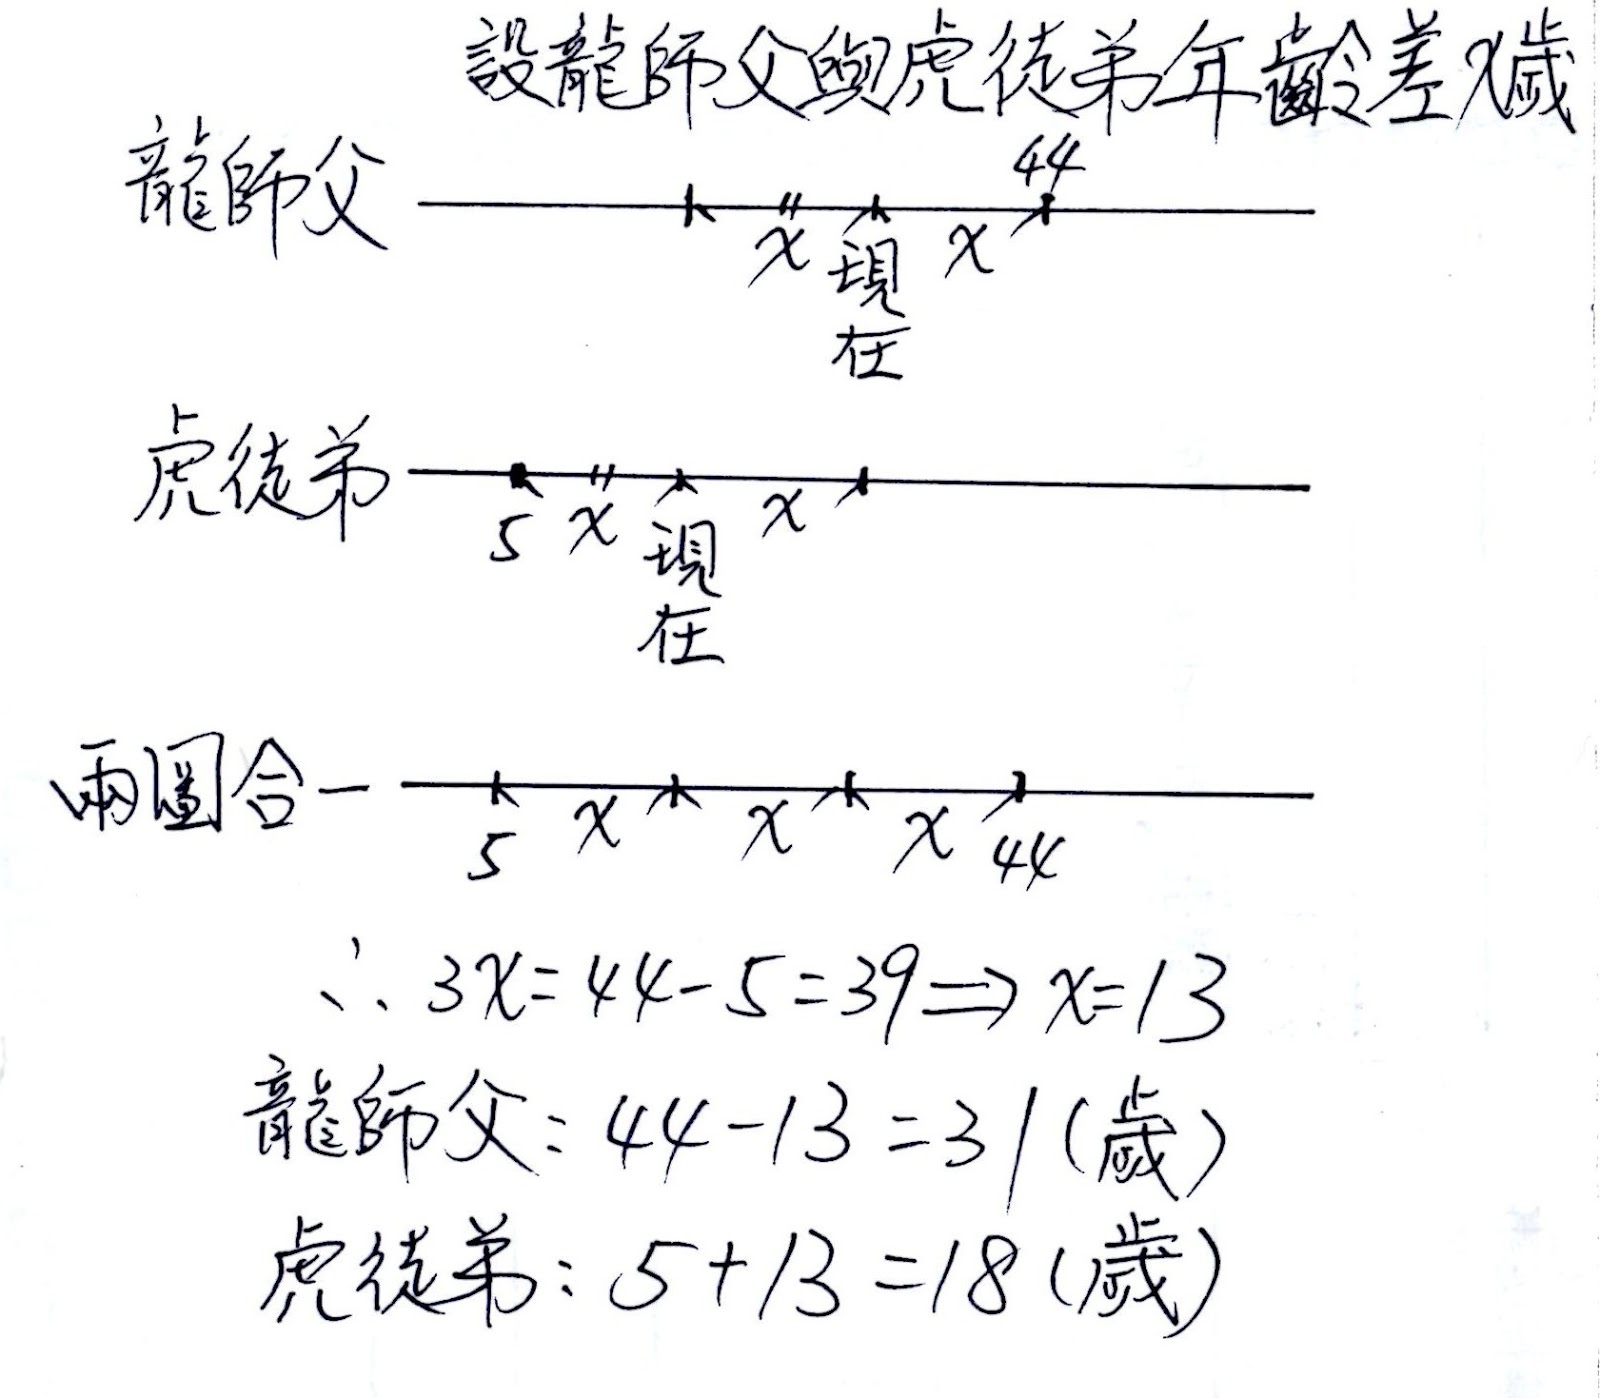 設龍師父與虎徒弟年齡差x歲
龍師父
44
x 現在 x
虎徒弟
5 x 現在 x
兩圖合一
5 x x x 44
∴ 3x=44-5=39⇒x=13
龍師父:44-13=31(歲)
虎徒弟:5+13=18(歲)